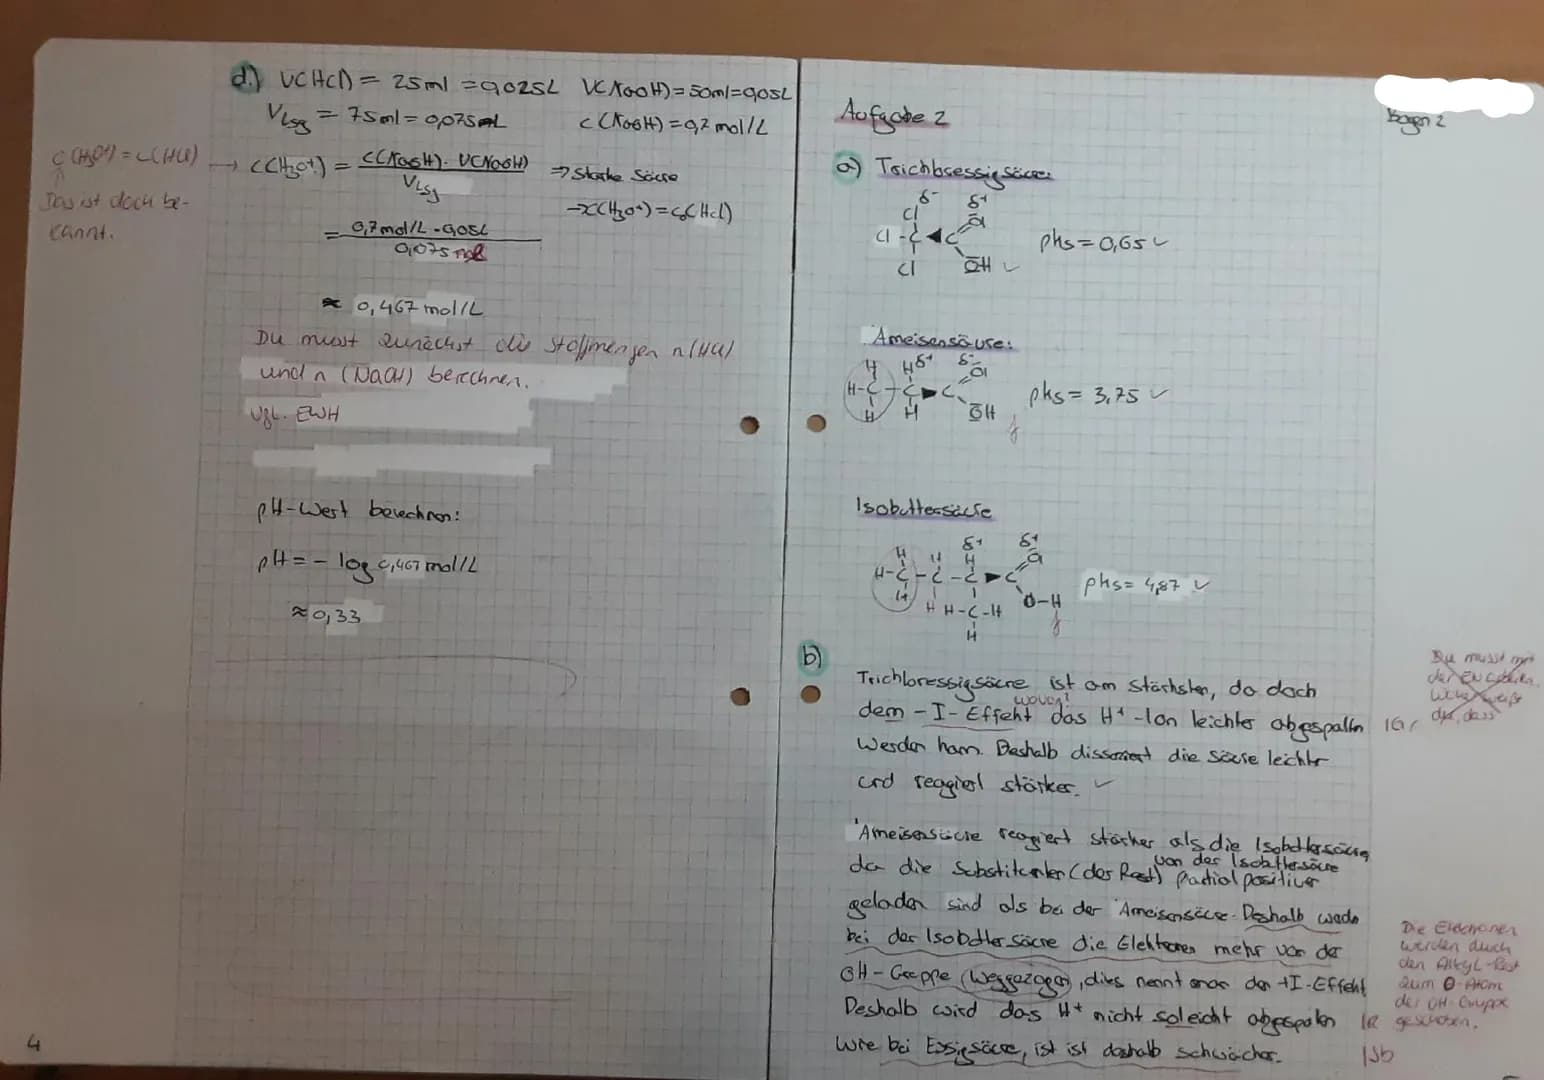 d.) V(HCl) = 25ml = 0,025L V(NaOH) = 50ml = 0,05L
VLsg = 75ml = 0,075L c(NaOH) = 0,7 mol/L
c(H3O+) = c(HCl)
↑
Das ist doch be-
kannt.
→ c(H3O+) = c(NaOH) · V(NaOH) / VLsg ⇒ Starke Säure
→ c(H3O+) = c0(HCl)
= 0,7mol/L · 0,05L / 0,075
≈ 0,467 mol/L
Du musst zunächst die Stoffmengen n(HCl)
und n (NaOH) berechnen.
Vgl. EWH
pH-Wert berechnen:
pH = - log 0,467 mol/L
≈ 0,33
4
Bogen 2
Aufgabe 2
a) Trichloressigsäure:
δ- δ+
Cl O
Cl - C ◄ C
Cl OH ✓
pks = 0,65 ✓
Ameisensäure:
H H δ+ δ- O
H-C - C ► C
H H OH f
pks = 3,75 ✓
Isobuttersäure
δ+ δ+
H H H O
H-C - C - C ► C
H H H-C-H O-H
H f
pks = 4,87 ✓
b)
Trichloressigsäure ist am stärksten, da doch
wovon?
dem -I-Effekt das H+-Ion leichter abgespalten |Gr
werden kann. Deshalb dissoniert die Säure leichter
und reagiert stärker. ✓
Du musst mit
der EN arbeiten.
Ameisensäure reagiert stärker als die Isobuttersäure,
von der Isobuttersäure
da die Substituenten (der Rest) partial positiver
geladen sind als bei der Ameisensäure. Deshalb werden
bei der Isobuttersäure die Elektronen mehr von der
OH-Gruppe (weggezogen), dies nennt man den +I-Effekt
Deshalb wird das H+ nicht so leicht abgespalten |R
wie bei Essigsäure, ist ist deshalb schwächer. |Sb
Die Elektronen
werden durch
den Alkyl-Rest
zum O-Atom
der OH-Gruppe
geschoben.